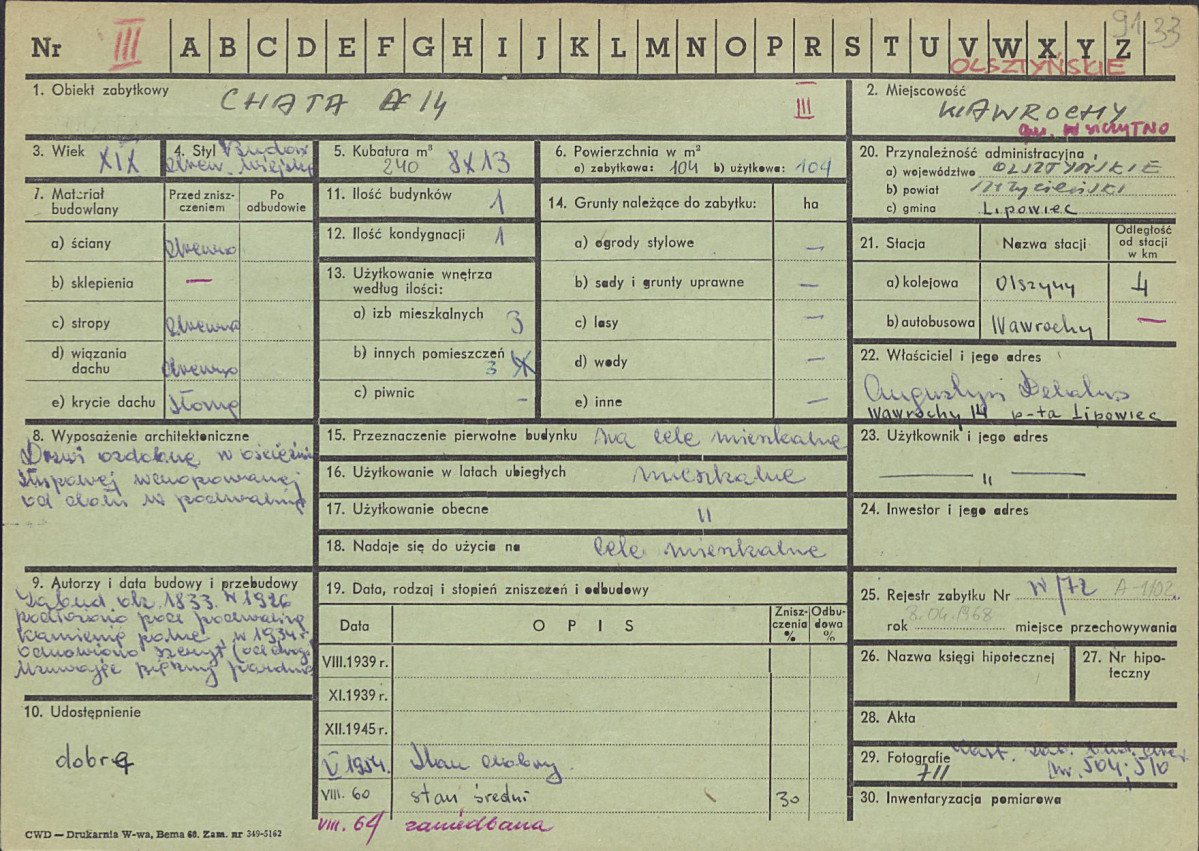 Nr III A B C D E F G H I J K L M N O P R S T U V W X Y Z
91 33
OLSZTYŃSKIE
1. Obiekt zabytkowy CHATA 14
III
2. Miejscowość
WAWROCHY
gm. W SZCZYTNO
3. Wiek XIX
4. Styl Budow
drew. wiejsk
5. Kubatura m³
240 8X13
6. Powierzchnia w m²
a) zabytkowa: 104 b) użytkowa: 104
20. Przynależność administracyjna
a) województwo OLSZTYŃSKIE
b) powiat szczycieński
c) gmina Lipowiec
7. Materiał budowlany
Przed zniszczeniem
Po odbudowie
a) ściany drewno
b) sklepienia —
c) stropy drewno
d) wiązania dachu drewno
e) krycie dachu słomą
11. Ilość budynków 1
12. Ilość kondygnacji 1
13. Użytkowanie wnętrza
według ilości:
a) izb mieszkalnych 3
b) innych pomieszczeń
3
c) piwnic –
14. Grunty należące do zabytku: ha
a) ogrody stylowe –
b) sady i grunty uprawne –
c) lasy –
d) wody –
e) inne –
21. Stacja
Nazwa stacji
Odległość
od stacji
w km
a) kolejowa Olszyny 4
b) autobusowa Wawrochy —
22. Właściciel i jego adres
Augustyn
Wawrochy 14 p-ta Lipowiec
8. Wyposażenie architektoniczne
Drzwi ozdobne w
słupowej
od dołu w podwalinę
15. Przeznaczenie pierwotne budynku na cele mieszkalne
16. Użytkowanie w latach ubiegłych mieszkalne
17. Użytkowanie obecne "
18. Nadaje się do użycia na cele mieszkalne
23. Użytkownik i jego adres
— " —
24. Inwestor i jego adres
9. Autorzy i data budowy i przebudowy
Zabud. ok. 1833. W 1926
podłożono pod podwalinę
kamienie polne, w 1934 r.
odnowiono szczyt (od drogi)
usuwając piękny
10. Udostępnienie
dobre
19. Data, rodzaj i stopień zniszczeń i odbudowy
Data
O P I S
Zniszczenia %
Odbudowa %
VIII.1939 r.
XI.1939 r.
XII.1945 r.
V 1954. Stan dobry.
VIII. 60 stan średni 30
VIII. 64 zaniedbana
25. Rejestr zabytku Nr W/72 A-1/02
8.04.1968
rok miejsce przechowywania
26. Nazwa księgi hipotecznej
27. Nr hipoteczny
28. Akta
29. Fotografie
711 nr. 504; 510
30. Inwentaryzacja pomiarowa
CWD — Drukarnia W-wa, Bema 60. Zam. nr 349-5162